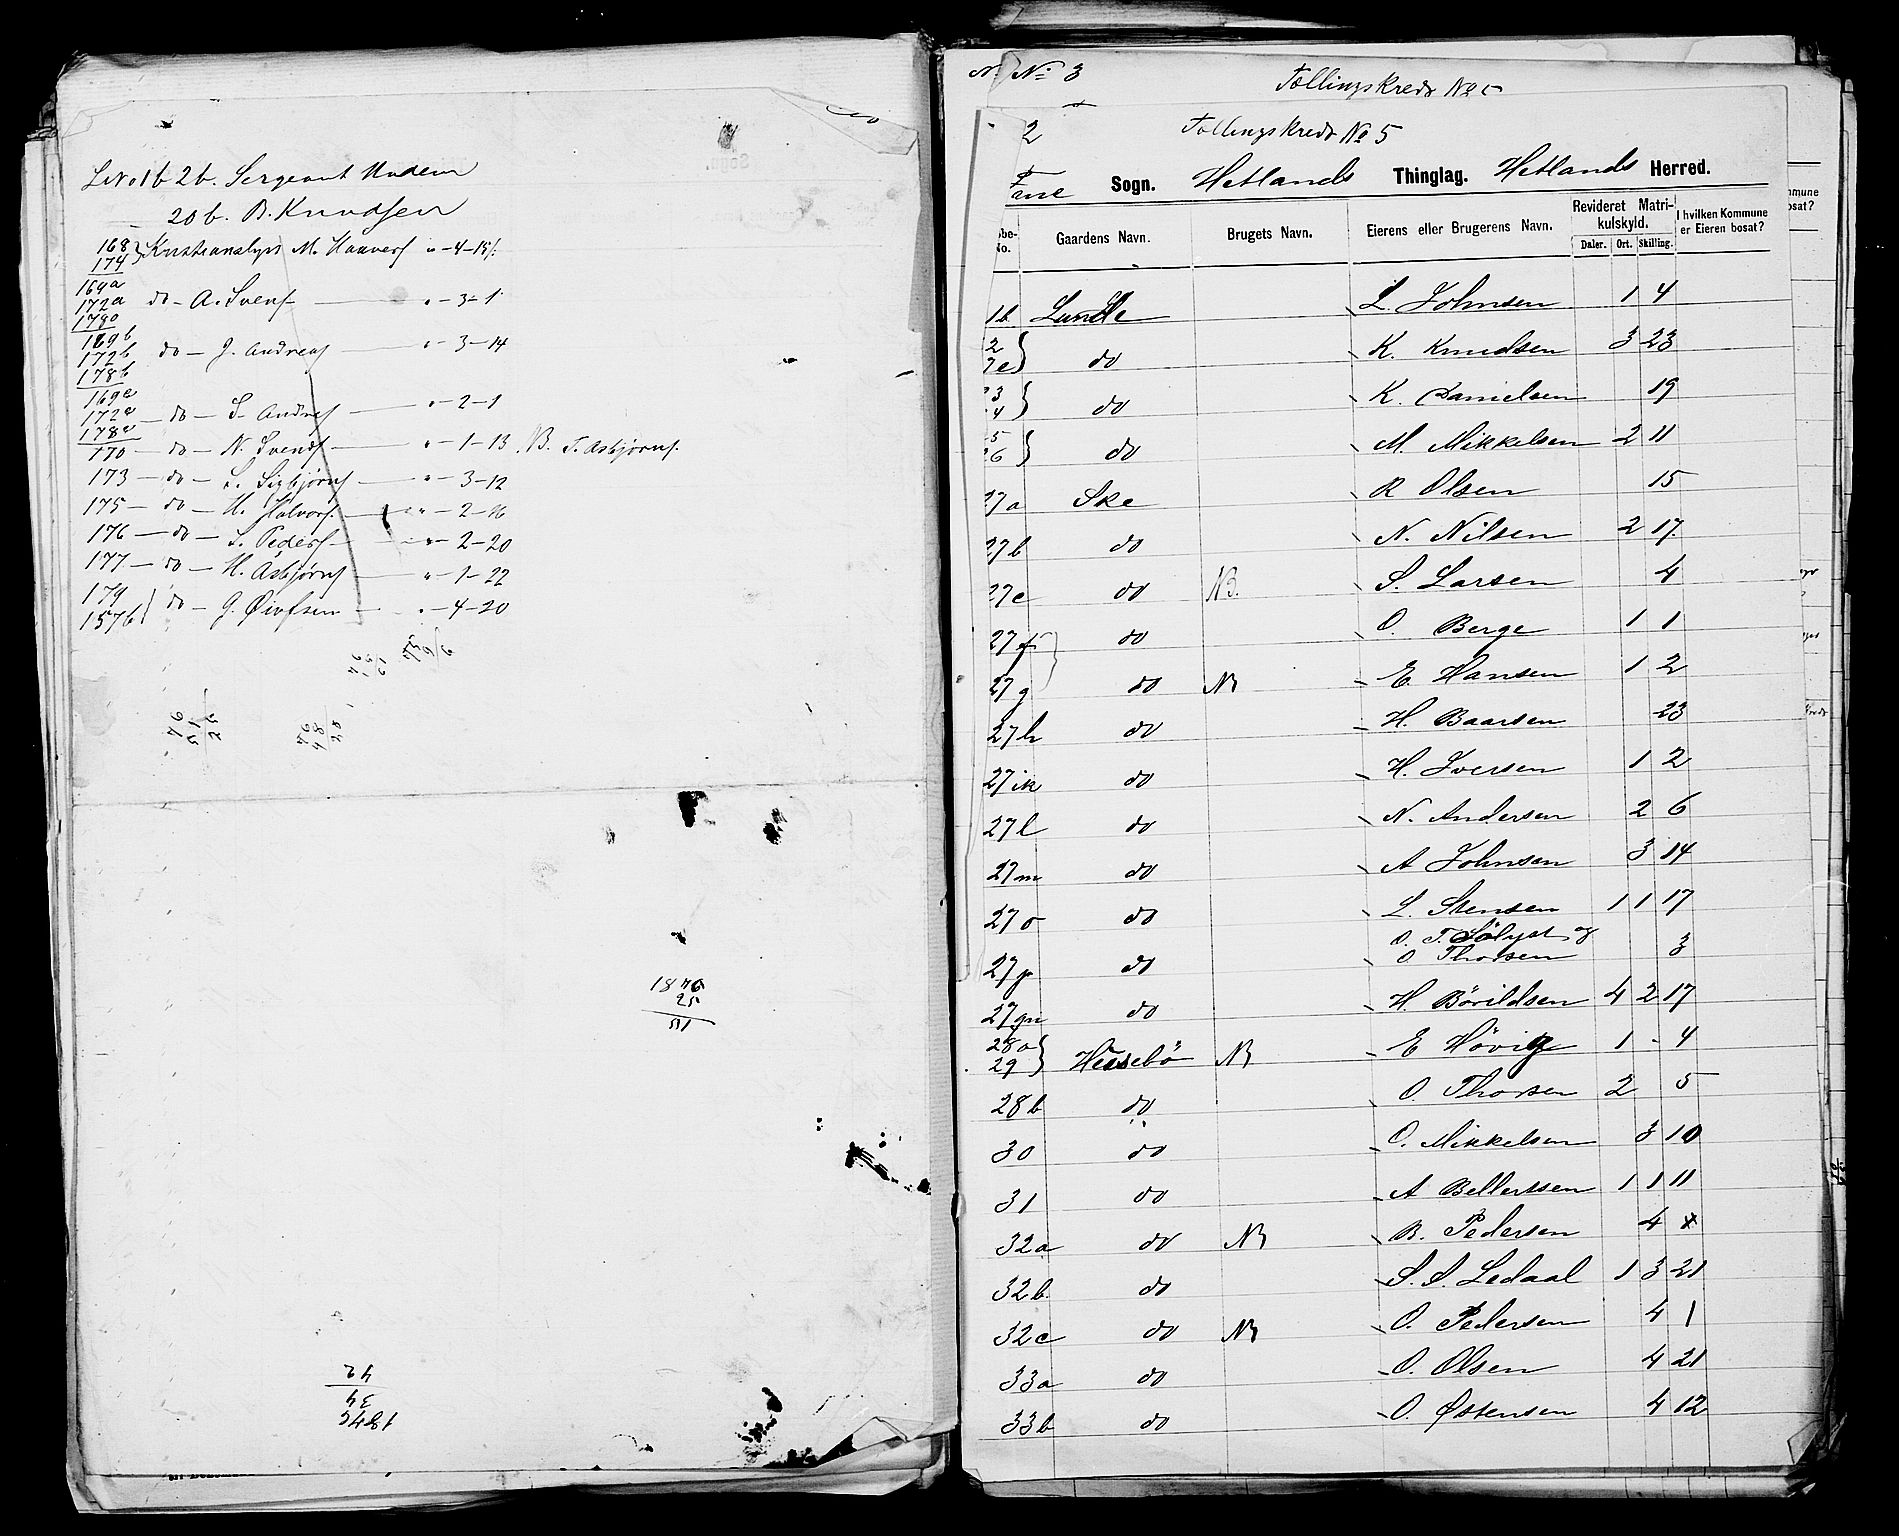 LNo 1b 2b. Sergeant
20b. B. Knudsen
168 174 } M. Haavors " - 4 - 15
169a 172a do - A. Svens — " - 3 - 1
169b 172b 178b do - J. Andreas — " - 3 - 14
172c — do — S. Andreas — " - 2 - 1
170 — do — N. Svends — " - 1 - 13 NB. T. Asbjørns.
173 — do — S. Sigbjørns — " - 3 - 12
175 — do — H. Halvors. — " - 2 - 16
176 — do — S. Peders — " - 2 - 20
177 — do — H. Asbjørns — " - 1 - 22
179 157b } do — G. Øivfsen — " - 4 - 20
1876
25
51
42
34
No 3
Tællingskreds No 5
2
Tællingskreds No 5
Sogn. Hetlands Thinglag. Hetlands Herred.
be-No.
Gaardens Navn.
Brugets Navn.
Eierens eller Brugerens Navn.
Revideret Matri-kulskyld.
Daler. Ort. Skilling.
I hvilken Kommune er Eieren bosat?
1b Lunde L. Johnsen 1 4
2 7e } do K. Knudsen 3 23
3 4 } do K. Danielsen 19
5 26 } do M. Mikkelsen 2 11
27a Ske R Olsen 15
27b do N. Nilsen 2 17.
27c do NB. S. Larsen 4
27f do O. Berge 1 1
27g do NB E. Hansen 1 2
27h do H. Baarsen 23
27ik do H. Iversen 1 2
27l do N. Andersen 2 6
27m do A Johnsen 3 14
27o do L. Stensen 1 1 17
27p do O. T. Sølyst og O Thorsen 3
27qn do H. Bårildsen 4 2 17
28a 29 } Hessebø NB E Høvig 1 - 4
28b do O. Thorsen 2 5
30 do O. Mikkelsen 3 10
31 do A Bellertsen 1 1 11
32a do NB B. Pedersen 4
32b. do S. S. Ledaal 1 3 21
32c do NB O. Pedersen 4 1
33a do O. Olsen 4 21
33b do O. Østensen 4 12